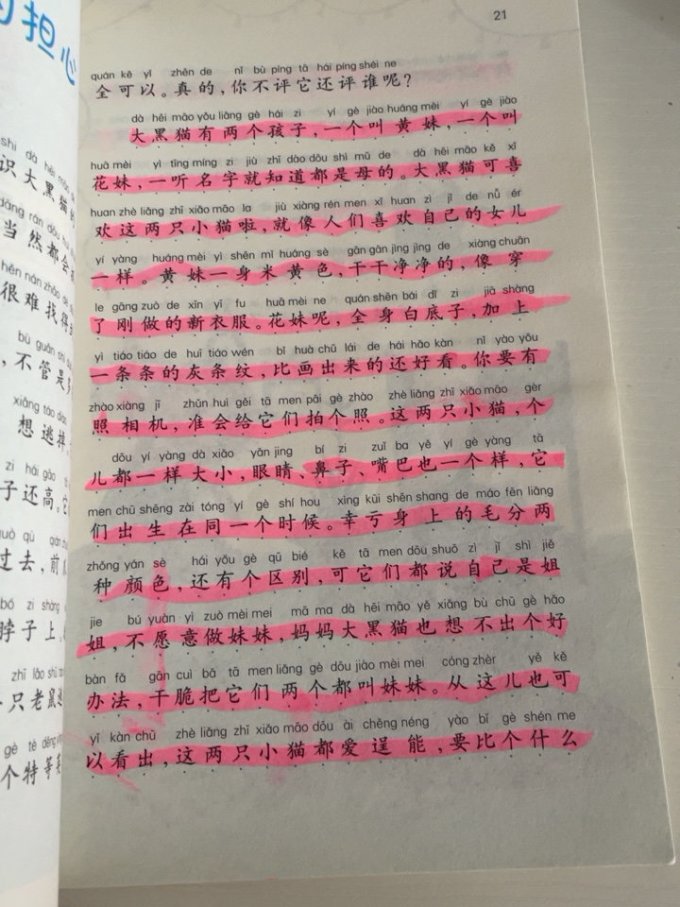 担心
shi dà hēi
识大黑猫的
dāng rán dōu huì
当然都会
hěn nán zhǎo dé
很难找得
bù guǎn shì
，不管是
xiǎng táo diào
想逃掉
zi hái gāo
子还高。它
guò qù qián
过去，前
bó zi shàng
脖子上
只老
gè tè děng
个特等
21
quán kě yǐ zhēn de nǐ bù píng tā hái píng shéi ne
全可以。真的，你不评它还评谁呢？
dà hēi māo yǒu liǎng gè hái zi yí gè jiào huáng mèi yí gè jiào
大黑猫有两个孩子，一个叫黄妹，一个叫
huā mèi yì tīng míng zi jiù zhī dào dōu shì mǔ de dà hēi māo kě xǐ
花妹，一听名字就知道都是母的。大黑猫可喜
huan zhè liǎng zhī xiǎo māo la jiù xiàng rén men xǐ huan zì jǐ de nǚ ér
欢这两只小猫啦，就像人们喜欢自己的女儿
yí yàng huáng mèi yì shēn mǐ huáng sè gān gān jìng jìng de xiàng chuān
一样。黄妹一身米黄色，干干净净的，像穿
le gāng zuò de xīn yī fu huā mèi ne quán shēn bái dǐ zi jiā shàng
了刚做的新衣服。花妹呢，全身白底子，加上
yì tiáo tiáo de huī tiáo wén bǐ huà chū lái de hái hǎo kàn nǐ yào yǒu
一条条的灰条纹，比画出来的还好看。你要有
zhào xiàng jī zhǔn huì gěi tā men pāi gè zhào zhè liǎng zhī xiǎo māo gèr
照相机，准会给它们拍个照。这两只小猫，个
dōu yí yàng dà xiǎo yǎn jing bí zi zuǐ ba yě yí gè yàng tā
儿都一样大小，眼睛、鼻子、嘴巴也一个样，它
men chū shēng zài tóng yí gè shí hou xìng kuī shēn shang de máo fēn liǎng
们出生在同一个时候。幸亏身上的毛分两
zhǒng yán sè hái yǒu gè qū bié kě tā men dōu shuō zì jǐ shì jiě
种颜色，还有个区别，可它们都说自己是姐
jie bú yuàn yì zuò mèi mei mā ma dà hēi māo yě xiǎng bù chū gè hǎo
姐，不愿意做妹妹，妈妈大黑猫也想不出个好
bàn fǎ gān cuì bǎ tā men liǎng gè dōu jiào mèi mei cóng zhèr yě kě
办法，干脆把它们两个都叫妹妹。从这儿也可
yǐ kàn chū zhè liǎng zhī xiǎo māo dōu ài chěng néng yào bǐ gè shén me
以看出，这两只小猫都爱逞能，要比个什么